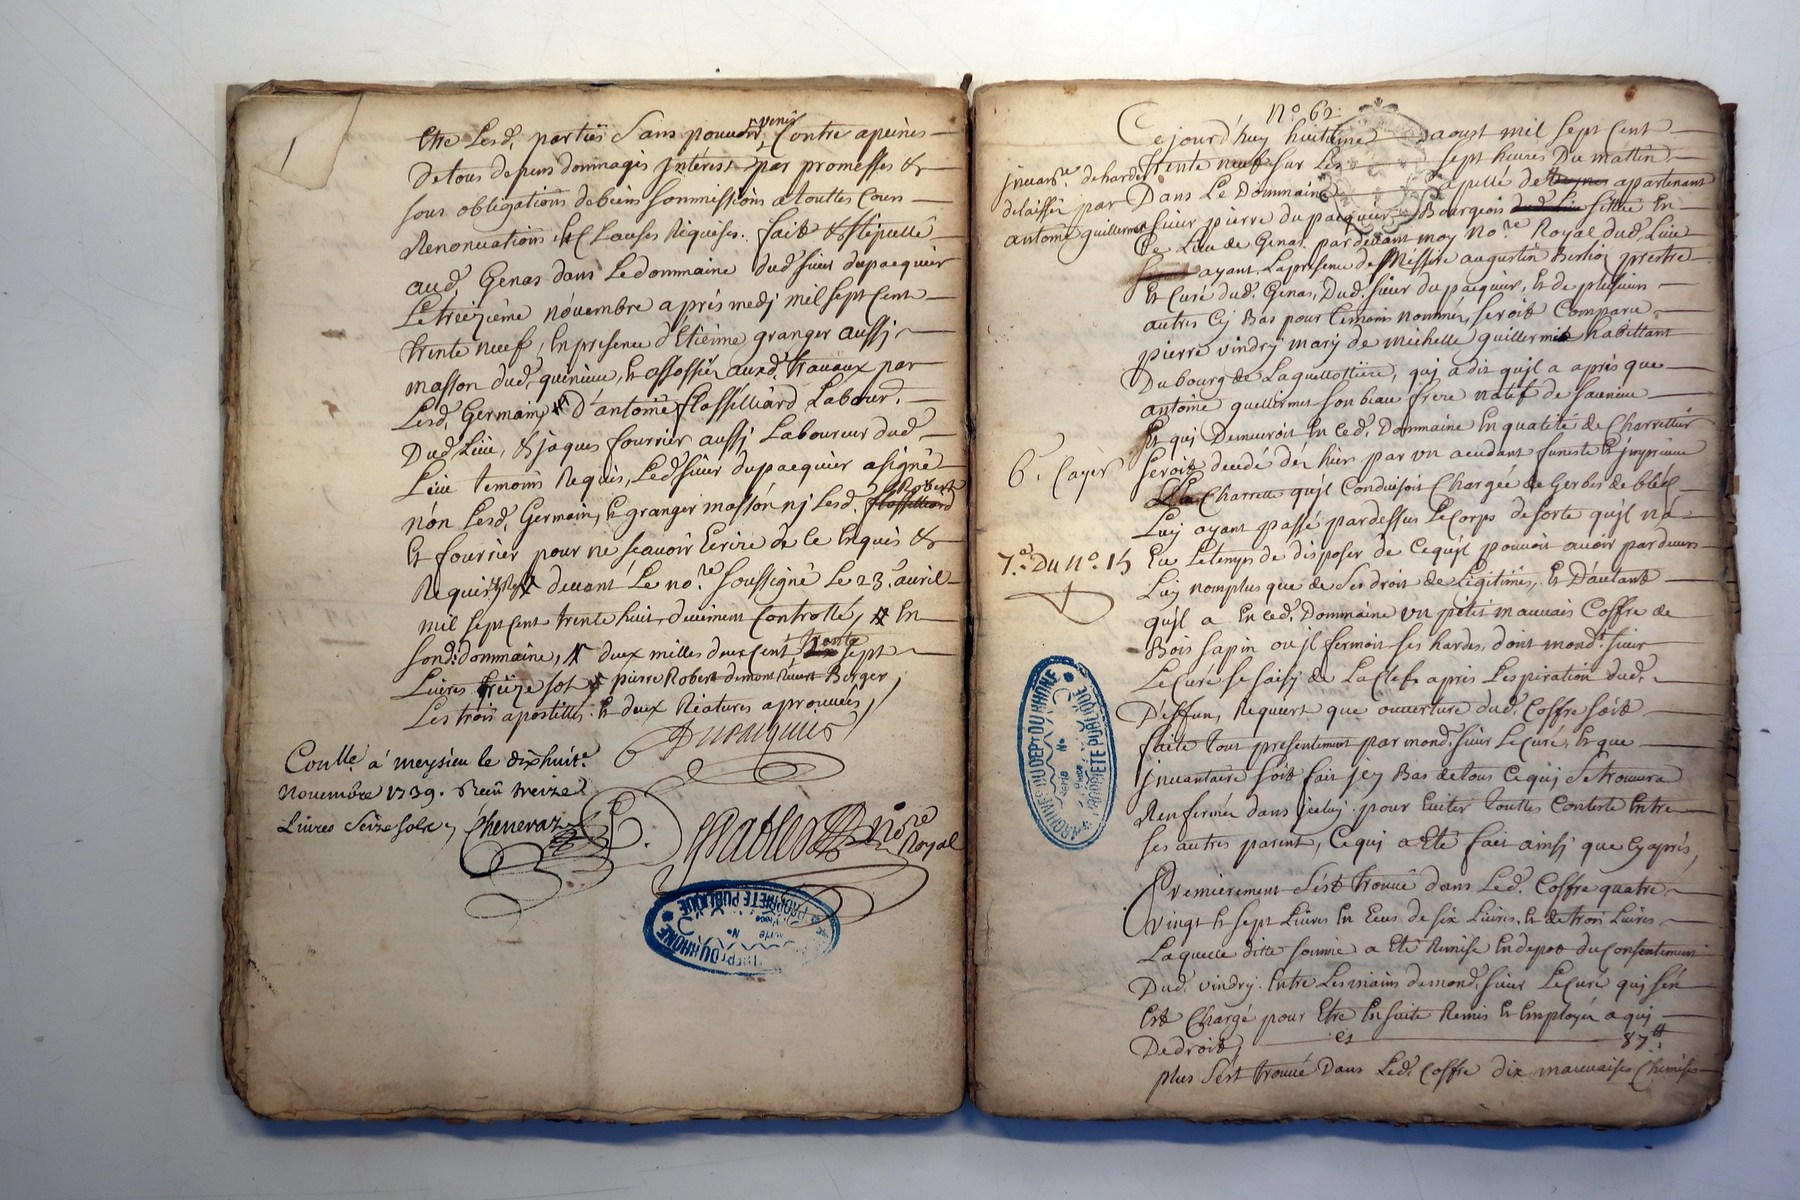 1
Etre Lesd. parties Sans pouvoir venir Contre apeines
de tous depens dommages jnterest par promesses &
sous obligations de biens sommissions a touttes Cours
Renonciations, & Clauses Requises. fait & stipullé
aud. Genas dans Le dommaine dud. sieur dupacquier
Le treizième novembre aprés medj mil sept Cent
trente neuf, En presence d'Etiénne granger aussj
masson dud. & assossier auxd. travaux par
Lesd. Germain, d'antoine flossilliard Labour.
Dud. Lieu, & jaques fourrier aussj Laboureur dud.
Lieu temoins Requis, Led. sieur dupacquier a signé
non Lesd. Germain, & granger masson nj Lesd. flossilliard Robert
Et fourrier pour ne scavoir Ecrire de ce Enquis &
Requis devant Le no.re soussigné Le 23. avril
mil sept Cent trente huit, duement Controllé, En
sond. dommaine, deux milles deux Cent trente sept
Livres treize sol pierre Robert Berger
Les trois apostilles. & deux Ratures aprouvées
Conlle a meysieu le dixhuit.e
Novembre 1739. Reçû treize
Livres Seize sols Chenevaz
no.re Royal
ARCHIVES DU DEPT DU RHÔNE
PROPRIÉTÉ PUBLIQUE
N.o 62.
Cejourd'huy huitieme aoust mil sept Cent
trente neuf sur Les sept heures Du mattin
Dans Le Dommaine apellé de apartenant
jnvan.re de hardes
delaissées par
antoine guillermet
a sieur pierre du pacquier Bourgeois sittué En
Ce Lieu de Genas. pardevant moy No.re Royal dud. Lieu
ayant La presence de Messire augustin prestre
Et Curé dud. Genas, Dud. sieur du pacquier, & de plusieurs
autres Cy Bas pour temoins nommés, seroit Comparu
pierre vindry mary de michelle guillermet habittant
Du bourg de Laguillottiere, quj a dit qujl a aprés que
antoine guillermet son beau frere natif de
Et quj Demeuroit En Ced. Dommaine En qualité de Charrettier
6.e Cayer
seroit decedé dés hier par un accidant funeste & jmpreveu
Charrette qujl Conduisoit Chargée de Gerbes de bléf
Luy ayant passé pardessus Le Corps de sorte qujl na
7.e Du N.o 15
Eu Le temps de disposer de Cequjl pouvoit avoir pardevers
Luy nomplus que de ses droit de Legitimes, Et D'autant
qujl a En Ced. Dommaine un petit mauvais Coffre de
Bois sapin ou jl fermoit ses hardes, dont mond.t sieur
Le Curé se saisj de La Clef aprés L'espiration dud.
Deffun, Requiert que ouverture dud. Coffre soit
faite tout presentement par mond. sieur Le Curé, Et que
jnvantaire soit fait jcy Bas de tous Cequj se trouvera
Renfermée dans jceluy. pour Eviter touttes Conteste Entre
ses autres parent, Cequj a Eté fait ainsj que Cyaprés,
Premierement s'est trouvé dans Led. Coffre quatre
vingt & sept Livres En Ecus de six Livres, & de trois Livres
Laquelle ditte somme a Eté Remise En depot du Consentement
Dud. vindry. Entre Les mains de mond. sieur Le Curé quj s'en
Est Chargé pour Etre En suite Remis & Employée a quj
De droit, cy 87 tt
plus s'est trouvé Dans Led. Coffre dix mauvaises Chemises
ARCHIVES DU DEPT DU RHÔNE
PROPRIÉTÉ PUBLIQUE